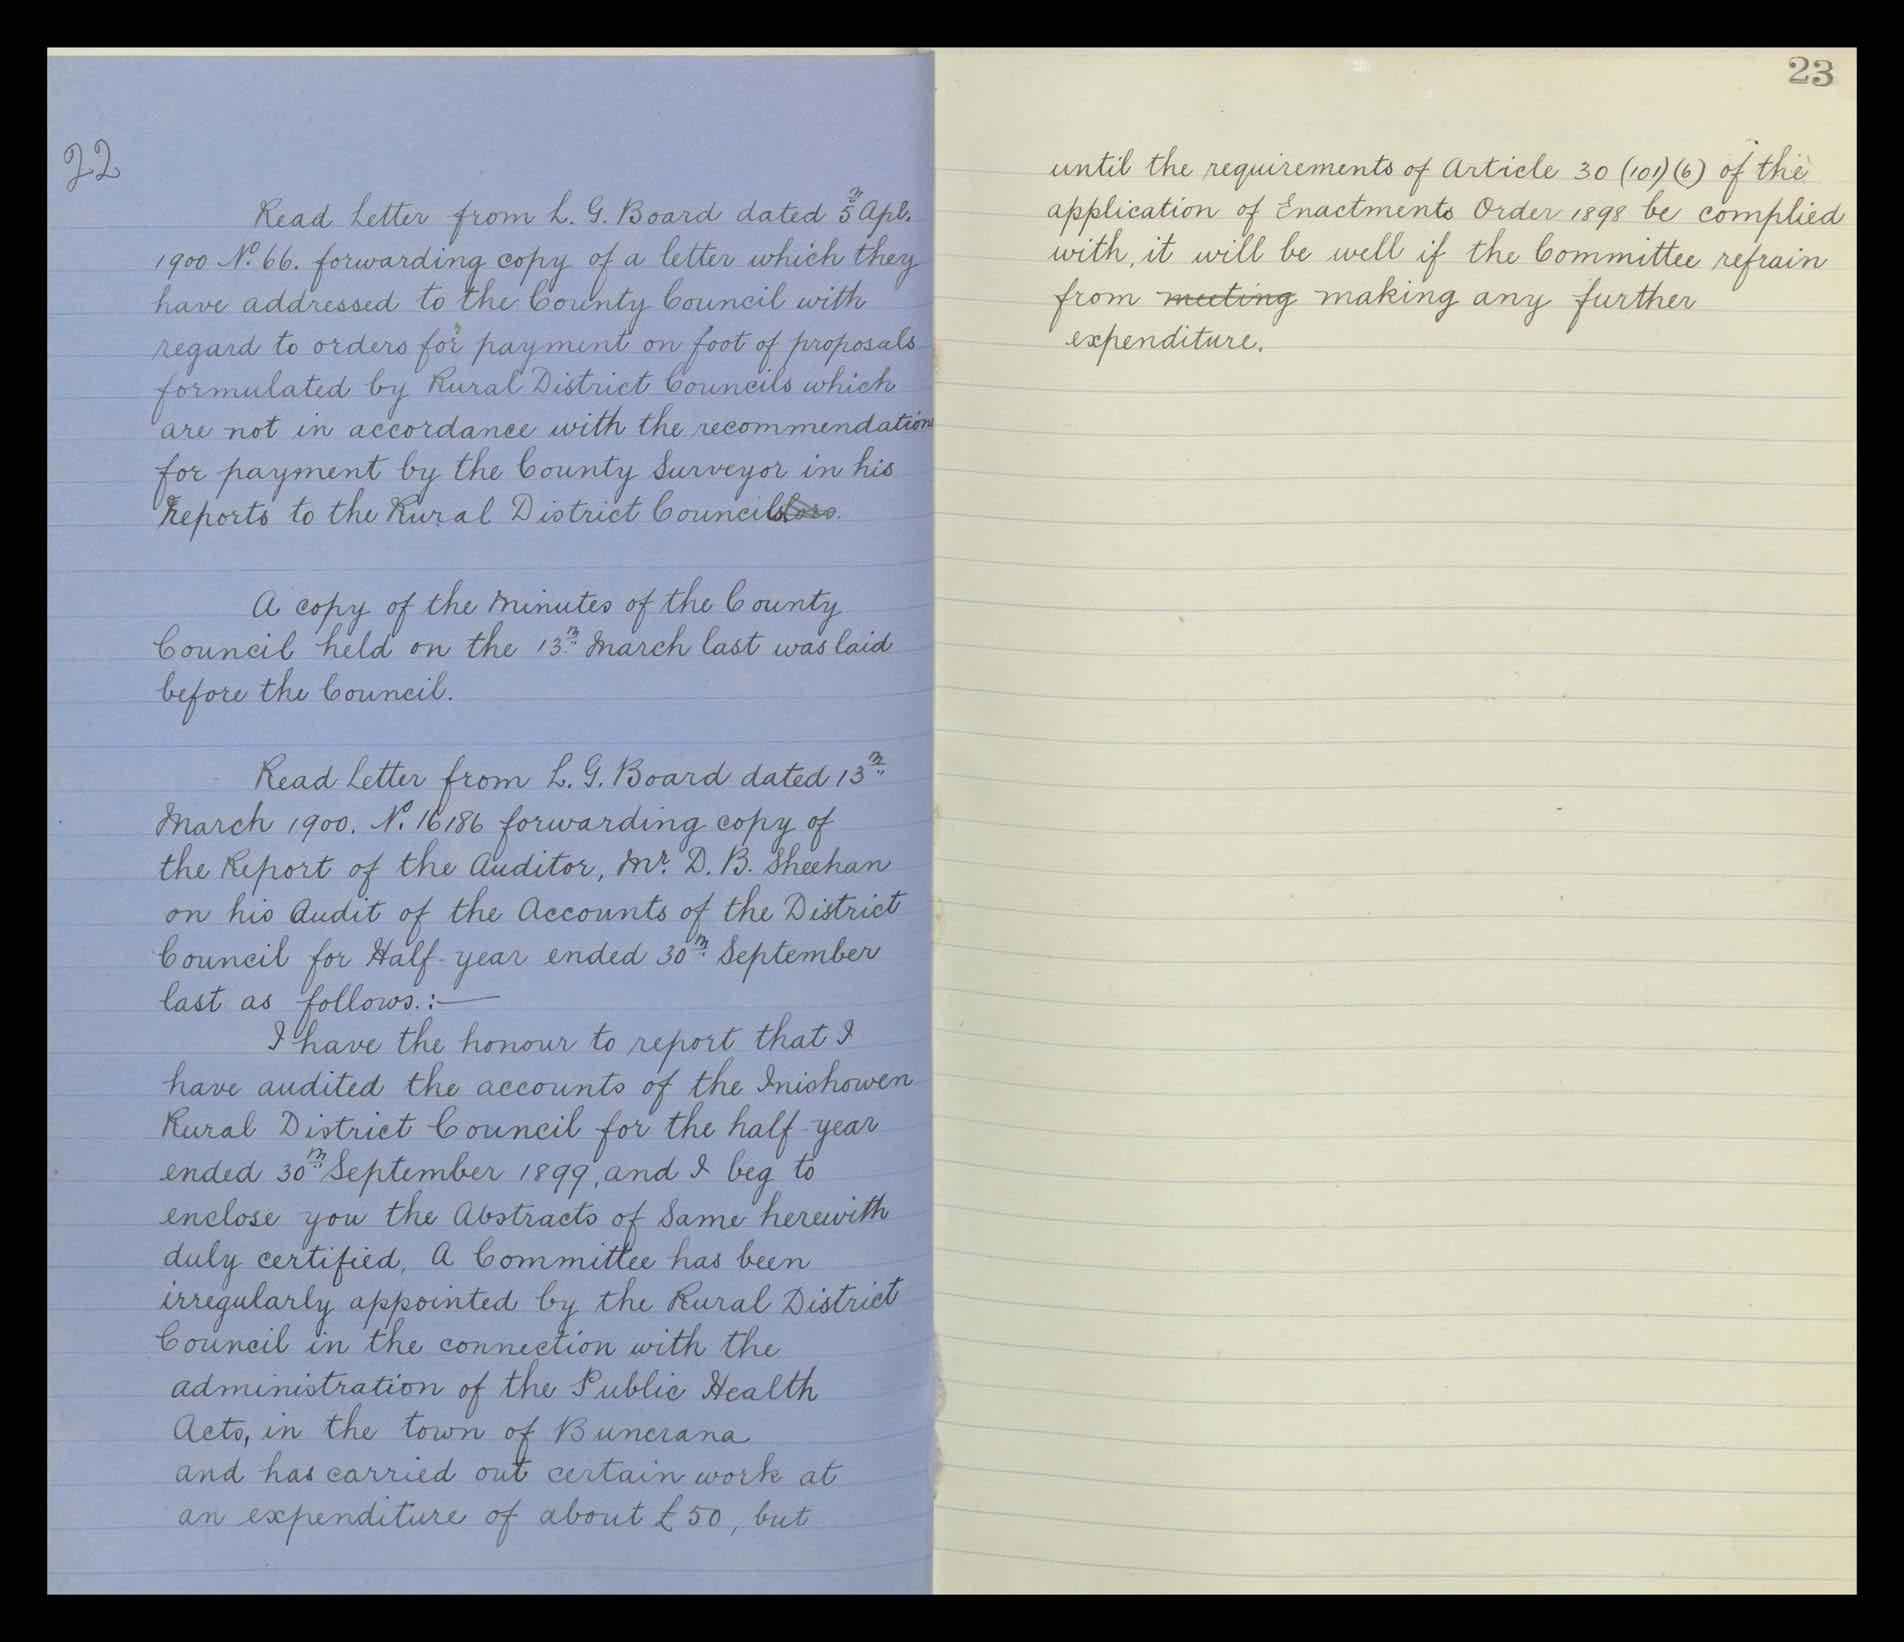 22
Read Letter from L. G. Board dated 5th Apl.
1900 No. 66. forwarding copy of a letter which they
have addressed to the County Council with
regard to orders for payment on foot of proposals
formulated by Rural District Councils which
are not in accordance with the recommendation
for payment by the County Surveyor in his
Reports to the Rural District Councils.
A copy of the Minutes of the County
Council held on the 13th March last was laid
before the Council.
Read Letter from L. G. Board dated 13th
March 1900. No. 16186 forwarding copy of
the Report of the Auditor, Mr. D. B. Sheehan
on his Audit of the Accounts of the District
Council for Half-year ended 30th September
last as follows.:—
I have the honour to report that I
have audited the accounts of the Inishowen
Rural District Council for the half-year
ended 30th September 1899, and I beg to
enclose you the Abstracts of Same herewith
duly certified. A Committee has been
irregularly appointed by the Rural District
Council in the connection with the
administration of the Public Health
Acts, in the town of Buncrana
and has carried out certain work at
an expenditure of about £50, but
23
until the requirements of Article 30 (101) (6) of the
application of Enactments Order 1898 be complied
with, it will be well if the Committee refrain
from meeting making any further
expenditure.